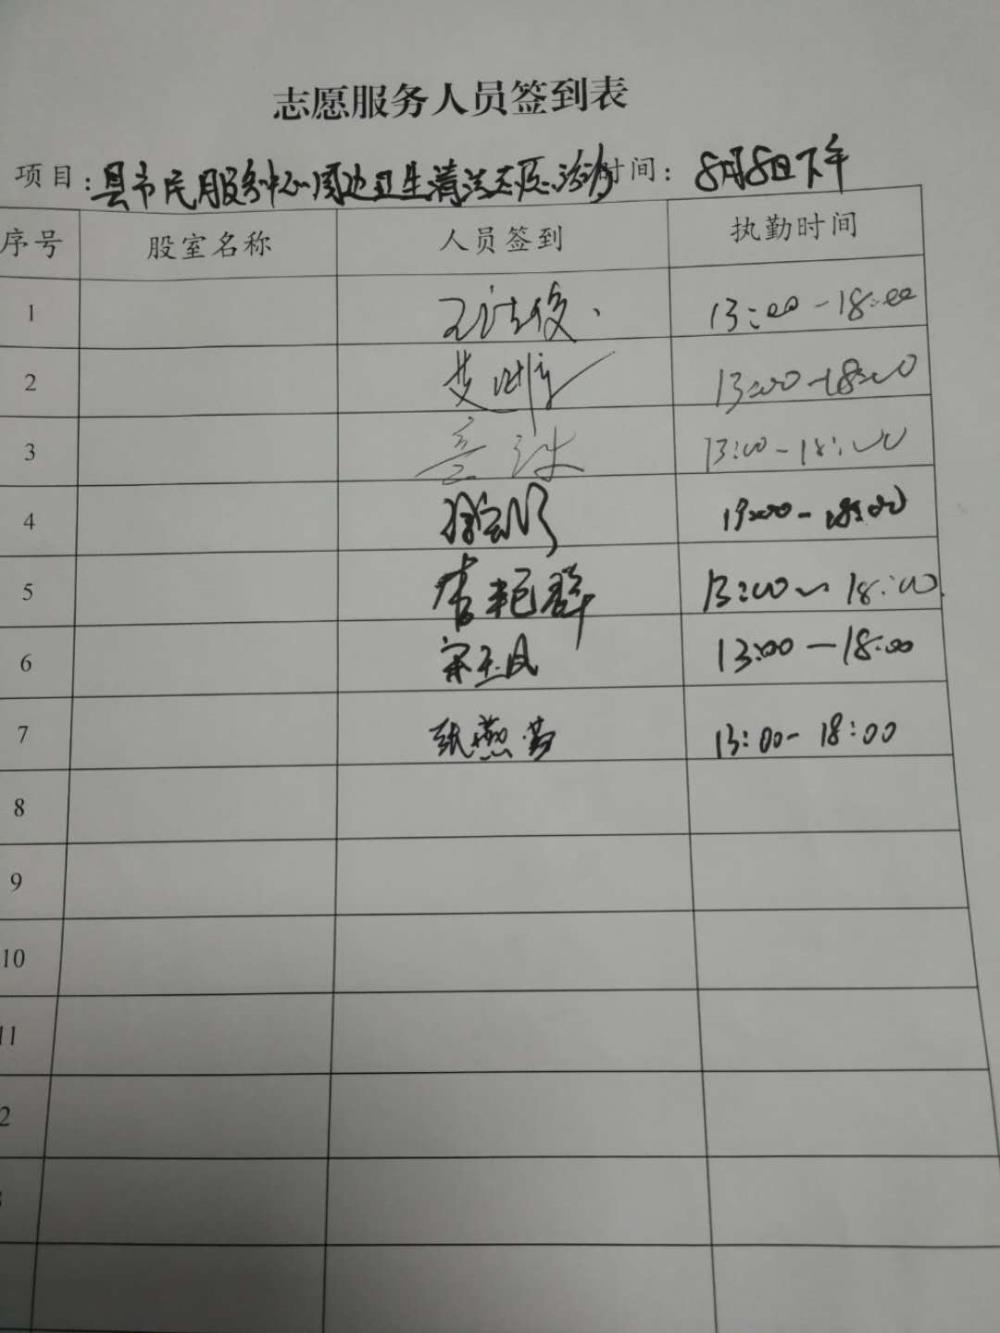 志愿服务人员签到表
项目：县市民服务中心周边卫生清洁志愿活动 时间：8月8日下午
序号 股室名称 人员签到 执勤时间
1 13:00-18:00
2 13:00-18:00
3 13:00-18:00
4 18:00
5 李艳群 13:00-18:00
6 宋玉凤 13:00-18:00
7 张燕 13:00-18:00
8
9
10
11
2